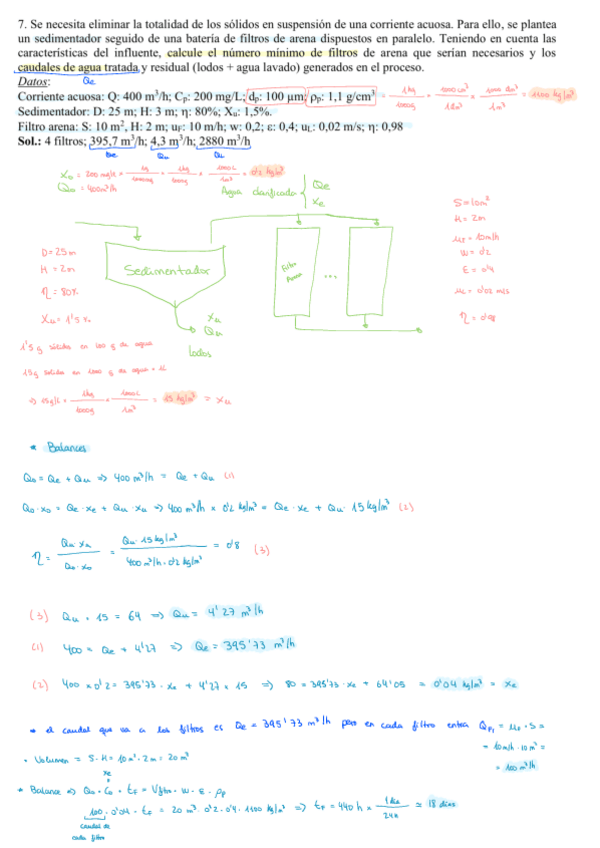 7. Se necesita eliminar la totalidad de los sólidos en suspensión de una corriente acuosa. Para ello, se plantea
un sedimentador seguido de una batería de filtros de arena dispuestos en paralelo. Teniendo en cuenta las
características del influente, calcule el número mínimo de filtros de arena que serían necesarios y los
caudales de agua tratada y residual (lodos + agua lavado) generados en el proceso.
Datos: Qe
Corriente acuosa: Q: 400 m³/h; Cp: 200 mg/L; dp: 100 µm; ρp: 1,1 g/cm³ = 1kg/1000g · 1000 cm³/1 dm³ · 1000 dm³/1m³ = 1100 kg/m³
Sedimentador: D: 25 m; H: 3 m; η: 80%; Xu: 1,5%.
Filtro arena: S: 10 m², H: 2 m; uF: 10 m/h; w: 0,2; ε: 0,4; uL: 0,02 m/s; η: 0,98
Sol.: 4 filtros; 395,7 m³/h; 4,3 m³/h; 2880 m³/h
Qe Qu
X₀ = 200 mg/L · 1000L/1m³ = 0'2 kg/m³
Q₀ = 400 m³/h
Agua clarificada { Qe
Xe
S = 10m²
H = 2m
µF = 10m/h
w = 0'2
ε = 0'4
µL = 0'02 m/s
η = 0'98
D = 25m
H = 2m
η = 80%
Xu = 1'5 %
Sedimentador
Filtro
Arena
...
Xu
Qu
lodos
1'5 g sólidos en 100 g de agua
15g solidos en 1000 g de agua = 1L
=> 15g/L · 1kg/1000g · 1000L/1m³ = 15 kg/m³ = Xu
* Balances
Q₀ = Qe + Qu => 400 m³/h = Qe + Qu (1)
Q₀·X₀ = Qe·Xe + Qu·Xu => 400 m³/h · 0'2 kg/m³ = Qe·Xe + Qu·15 kg/m³ (2)
η = Qu·Xu/Q₀·X₀ = Qu·15 kg/m³/400 m³/h·0'2 kg/m³ = 0'8 (3)
(3) Qu · 15 = 64 => Qu = 4'27 m³/h
(1) 400 = Qe + 4'27 => Qe = 395'73 m³/h
(2) 400 · 0'2 = 395'73 · Xe + 4'27 · 15 => 80 = 395'73 · Xe + 64'05 = 0'04 kg/m³ = Xe
* el caudal que va a los filtros es Qe = 395'73 m³/h pero en cada filtro entra QF₁ = µF · S =
= 10m/h · 10m² =
= 100 m³/h
• Volumen = S · H = 10m² · 2m = 20 m³
Xe
* Balance => Q₀ · C₀ · tF = Vfiltro · w · ε · ρp
100 · 0'04 · tF = 20 m³ · 0'2 · 0'4 · 1100 kg/m³ => tF = 440 h · 1día/24h ≃ 18 días
caudal de
cada filtro